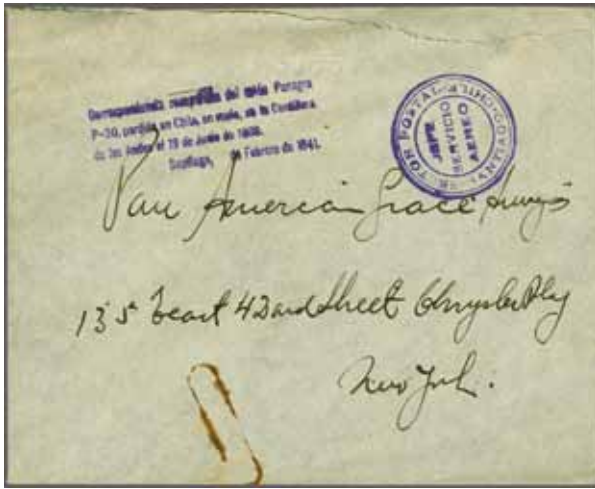 Correspondencia recuperada del avión Panagra
P-30, perdido en Chile, en vuelo, en la Cordillera
de los Andes el 19 de Junio de 1938.
Santiago, de Febrero de 1941.
TOR POSTAL
SANTIAGO-CHILE
JEFE
SERVICIO
AEREO
Pan American Grace
135 East 42nd Street Chrysler Bldg
New York.